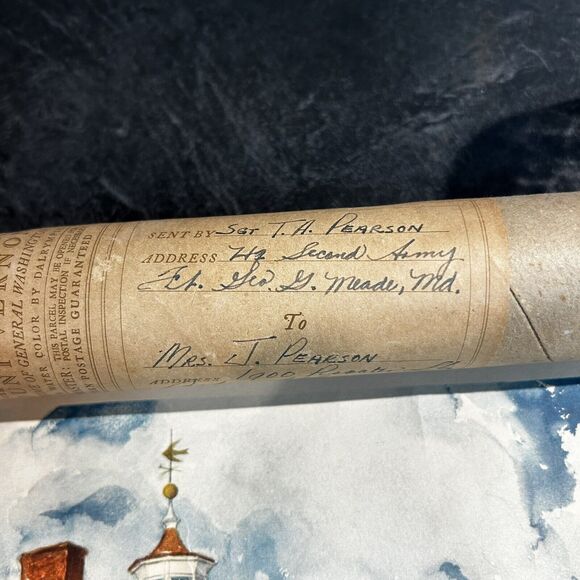 SENT BY SGT T. A. PEARSON
ADDRESS HQ Second Army
Ft. Geo. G. Meade, Md.
To
MRS. J. PEARSON
ADDRESS 1900
OF GENERAL WASHINGTON
COLOR BY
THIS PARCEL MAY BE OPENED
POSTAL INSPECTION IF NECESSARY
POSTAGE GUARANTEED